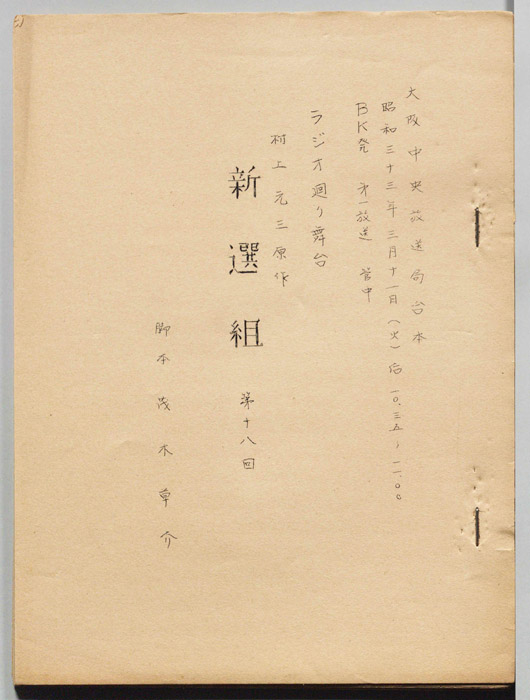 大阪中央放送局台本
昭和三十三年三月十一日(火)后一〇.三五〜一一.〇〇
BK発 㐧一放送 管中
ラジオ廻り舞台
村上元三原作
新選組 第十八回
脚本 茂木草介